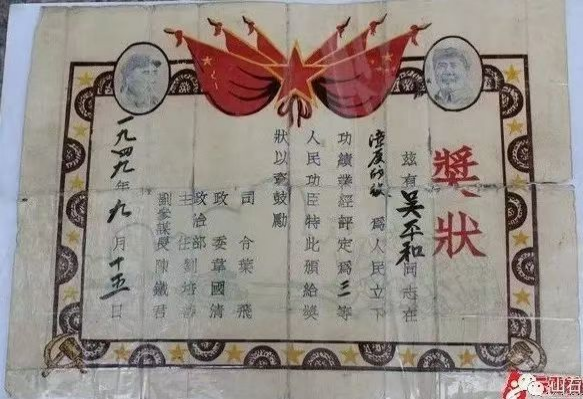 獎狀
茲有吳平和同志在
為人民立下
功績業經評定爲三等
人民功臣特此頒給獎
狀以資鼓勵
司令葉飛
政委韋國清
政治部
主任劉培善
陳鐵君
一九四九年九月十五日
山石